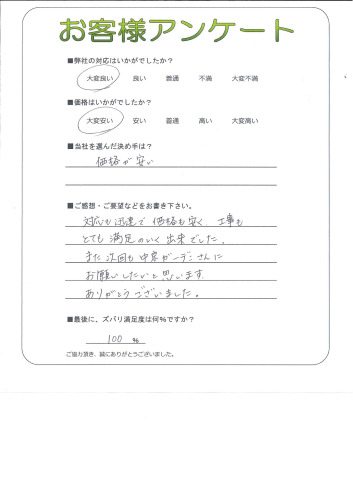 お客様アンケート
■弊社の対応はいかがでしたか？
大変良い 良い 普通 不満 大変不満
■価格はいかがでしたか？
大変安い 安い 普通 高い 大変高い
■当社を選んだ決め手は？
価格が安い
■ご感想・ご要望などをお書き下さい。
対応も迅速で価格も安く 工事も
とても満足のいく出来でした。
また次回も中京ガーデンさんに
お願いしたいと思います。
ありがとうございました。
■最後に、ズバリ満足度は何%ですか？
100 %
ご協力頂き、誠にありがとうございました。